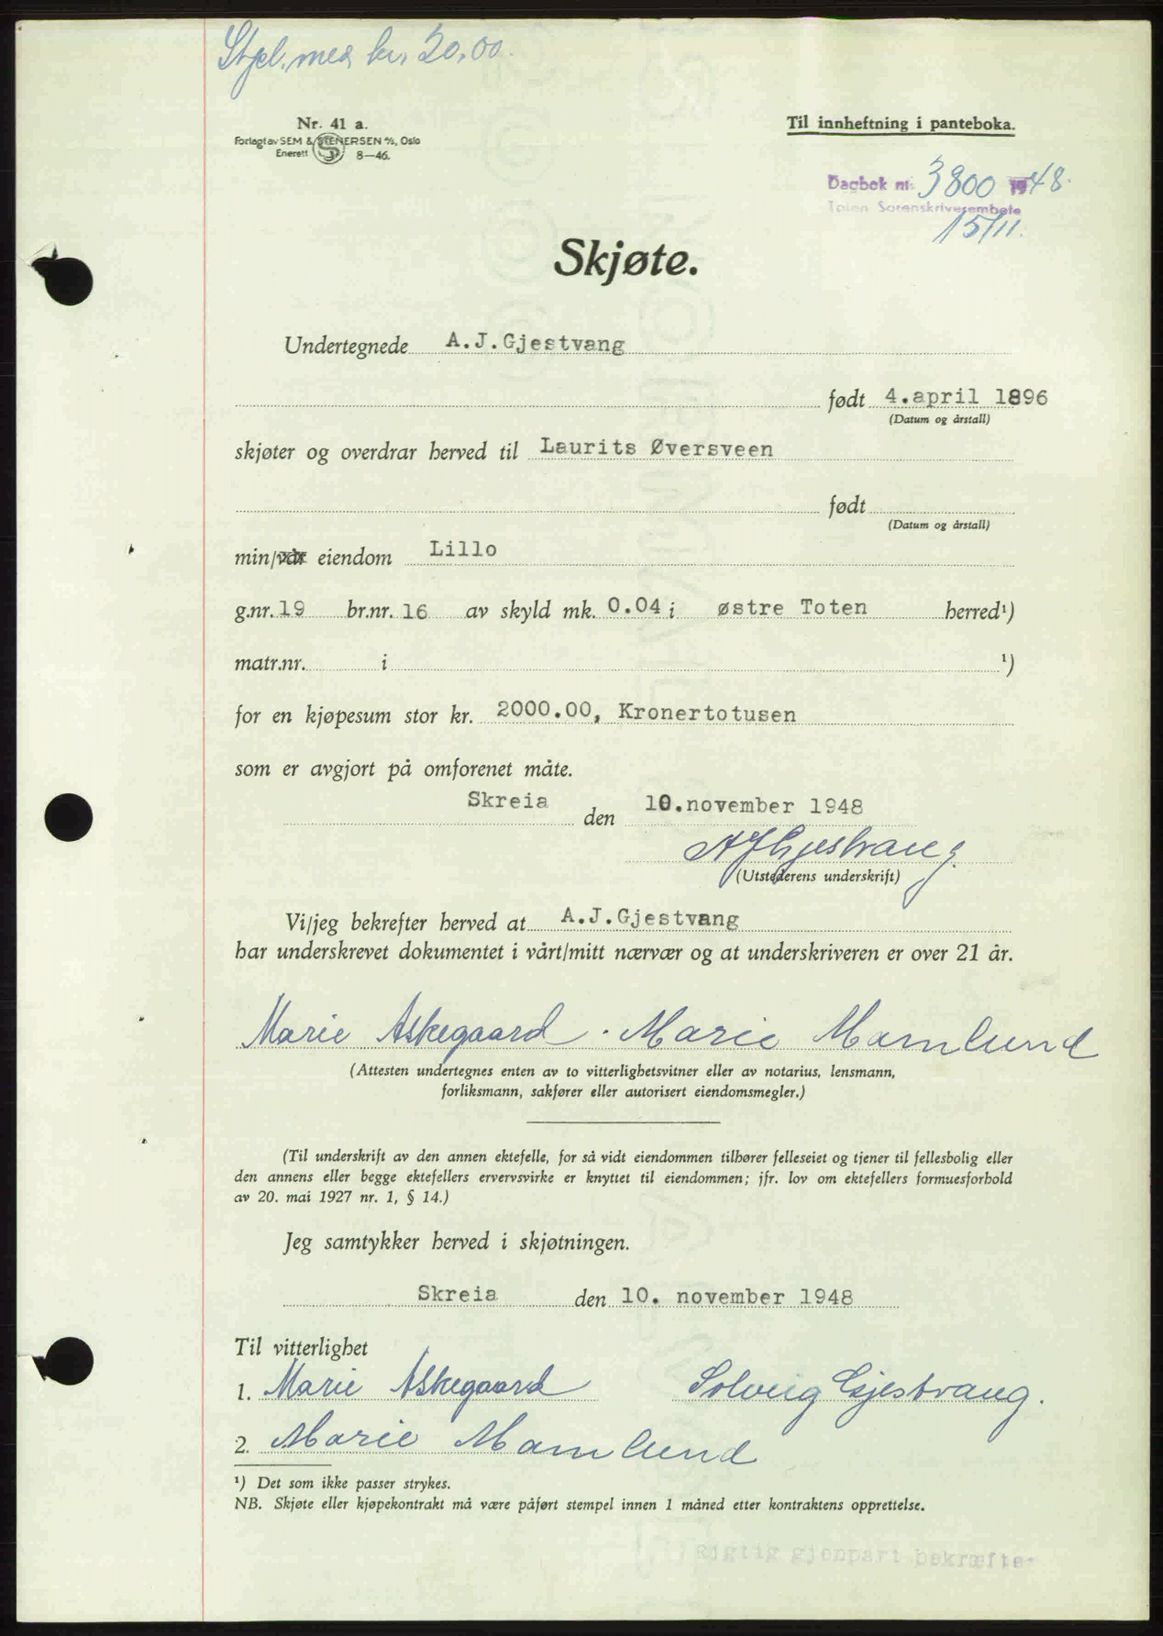 Stpl. med kr. 20.00.
Nr. 41 a.
Forlagt av SEM & STENERSEN A/S, Oslo
Enerett 8—46.
Til innheftning i panteboka.
Dagbok nr. 3800 1948.
Toten Sorenskriverembete
15/11.
Skjøte.
Undertegnede A.J.Gjestvang
født 4.april 1896
(Datum og årstall)
skjøter og overdrar herved til Laurits Øversveen
født
(Datum og årstall)
min/vår eiendom Lillo
g.nr. 19 br.nr. 16 av skyld mk. 0.04 i østre Toten herred¹)
matr.nr. i ¹)
for en kjøpesum stor kr. 2000.00, Kronertotusen
som er avgjort på omforenet måte.
Skreia den 10.november 1948
A J Gjestvang
(Utstederens underskrift)
Vi/jeg bekrefter herved at A.J.Gjestvang
har underskrevet dokumentet i vårt/mitt nærvær og at underskriveren er over 21 år.
Marie Askegaard. Marie Mamlund
(Attesten undertegnes enten av to vitterlighetsvitner eller av notarius, lensmann,
forliksmann, sakfører eller autorisert eiendomsmegler.)
(Til underskrift av den annen ektefelle, for så vidt eiendommen tilhører felleseiet og tjener til fellesbolig eller
den annens eller begge ektefellers ervervsvirke er knyttet til eiendommen; jfr. lov om ektefellers formuesforhold
av 20. mai 1927 nr. 1, § 14.)
Jeg samtykker herved i skjøtningen.
Skreia den 10. november 1948
Til vitterlighet
1. Marie Askegaard Solveig Gjestvang.
2. Marie Mamlund
¹) Det som ikke passer strykes.
NB. Skjøte eller kjøpekontrakt må være påført stempel innen 1 måned etter kontraktens opprettelse.
Rigtig gjenpart bekræftes